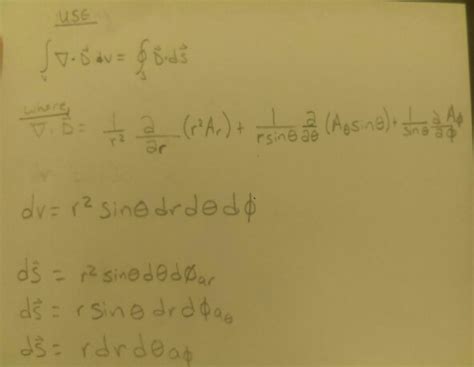 USE
∫_v ∇·D⃗ dv = ∮_s D⃗·ds⃗
where,
∇·D⃗ = 1/r² ∂/∂r (r²A_r) + 1/(r sinθ) ∂/∂θ (A_θ sinθ) + 1/sinθ ∂A_ϕ/∂ϕ
dv = r² sinθ dr dθ dϕ
ds⃗ = r² sinθ dθ dϕ a_r
ds⃗ = r sinθ dr dϕ a_θ
ds⃗ = r dr dθ a_ϕ